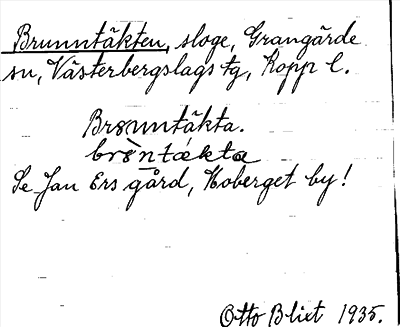 Brunntäkten, sloge, Grangärde
sn, Västerbergslags tg, Kopp l.
Brønntäkta.
brø̀ntǽkta
Se Jan Ers gård, Hoberget by!
Otto Blixt 1935.